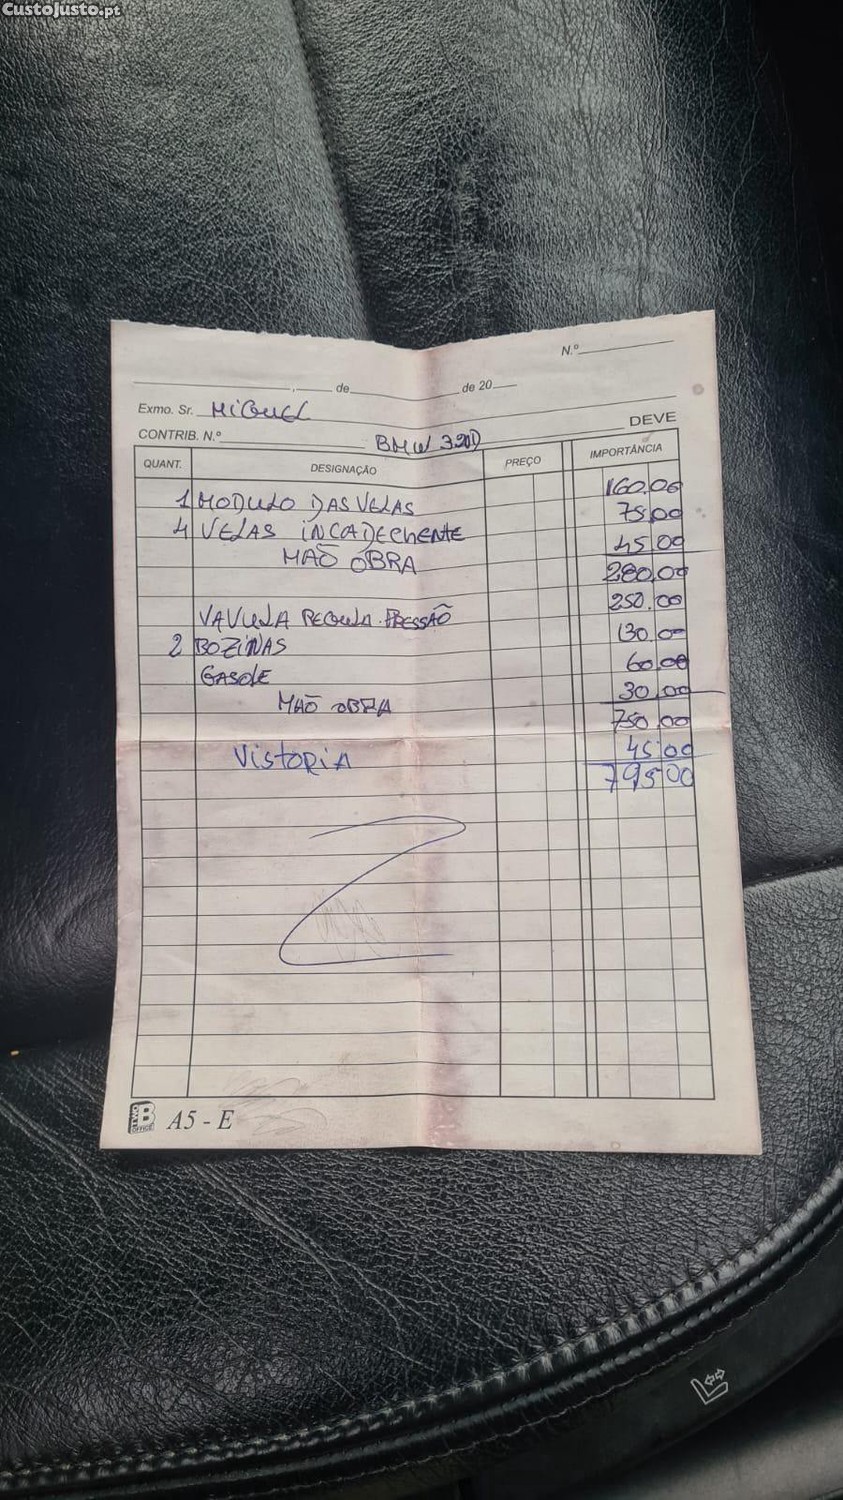 CustoJusto.pt
N.º
, de de 20
Exmo. Sr. MIGUEL
DEVE
CONTRIB. N.º BMW 320D
QUANT. DESIGNAÇÃO PREÇO IMPORTÂNCIA
1 MODULO DAS VELAS 160.00
4 VELAS INCADECHENTE 75.00
MAÕ ÓBRA 45.00
280.00
VAVULA REGULA. PRESSÃO 250.00
2 BOZINAS 130.00
GASOLE 60.00
MAÕ OBRA 30.00
750.00
VISTORIA 45.00
795.00
TWO B OFFICE A5 - E